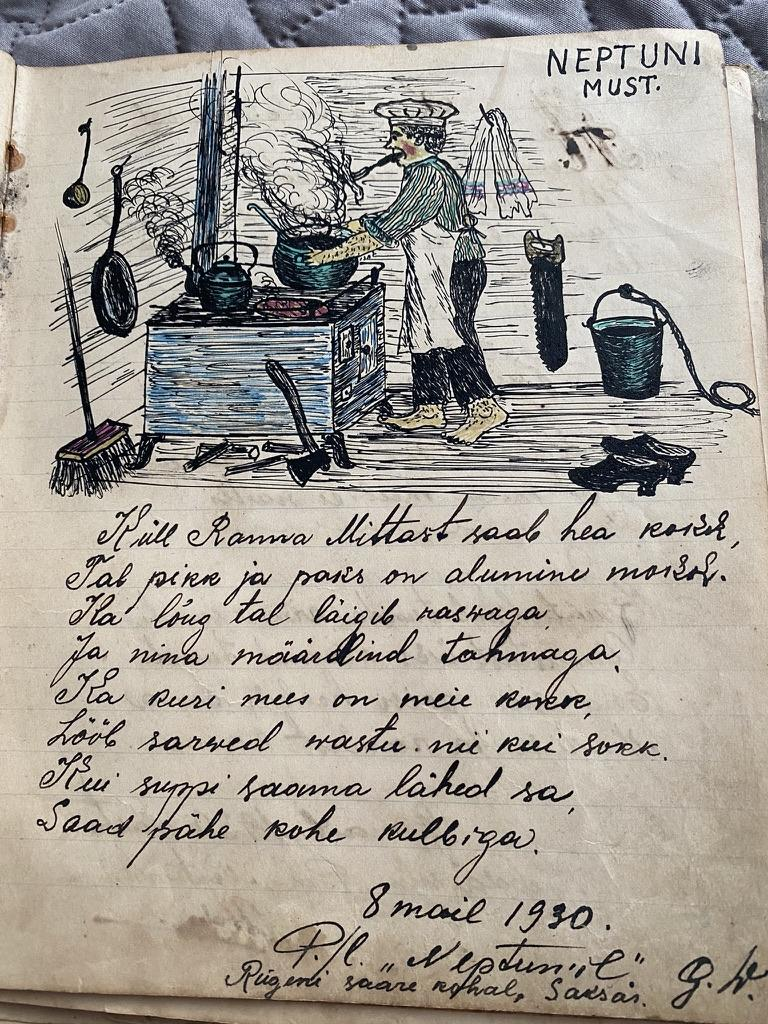 NEPTUNI
MUST.
Küll Ranna Mittast saab hea kokk,
Tal pikk ja paks on alumine mokk.
Ka lõug tal läigib raswaga
Ja nina määrdind tahmaga.
Ka kuri mees on meie kokk,
Lööb sarwed wastu nii kui sokk.
Kui suppi saama lähed sa,
Saad pähe kohe kulbiga.
8 mail 1930.
P/l. "Neptunil"
Rügeni saare kohal, Saksas. G. W.